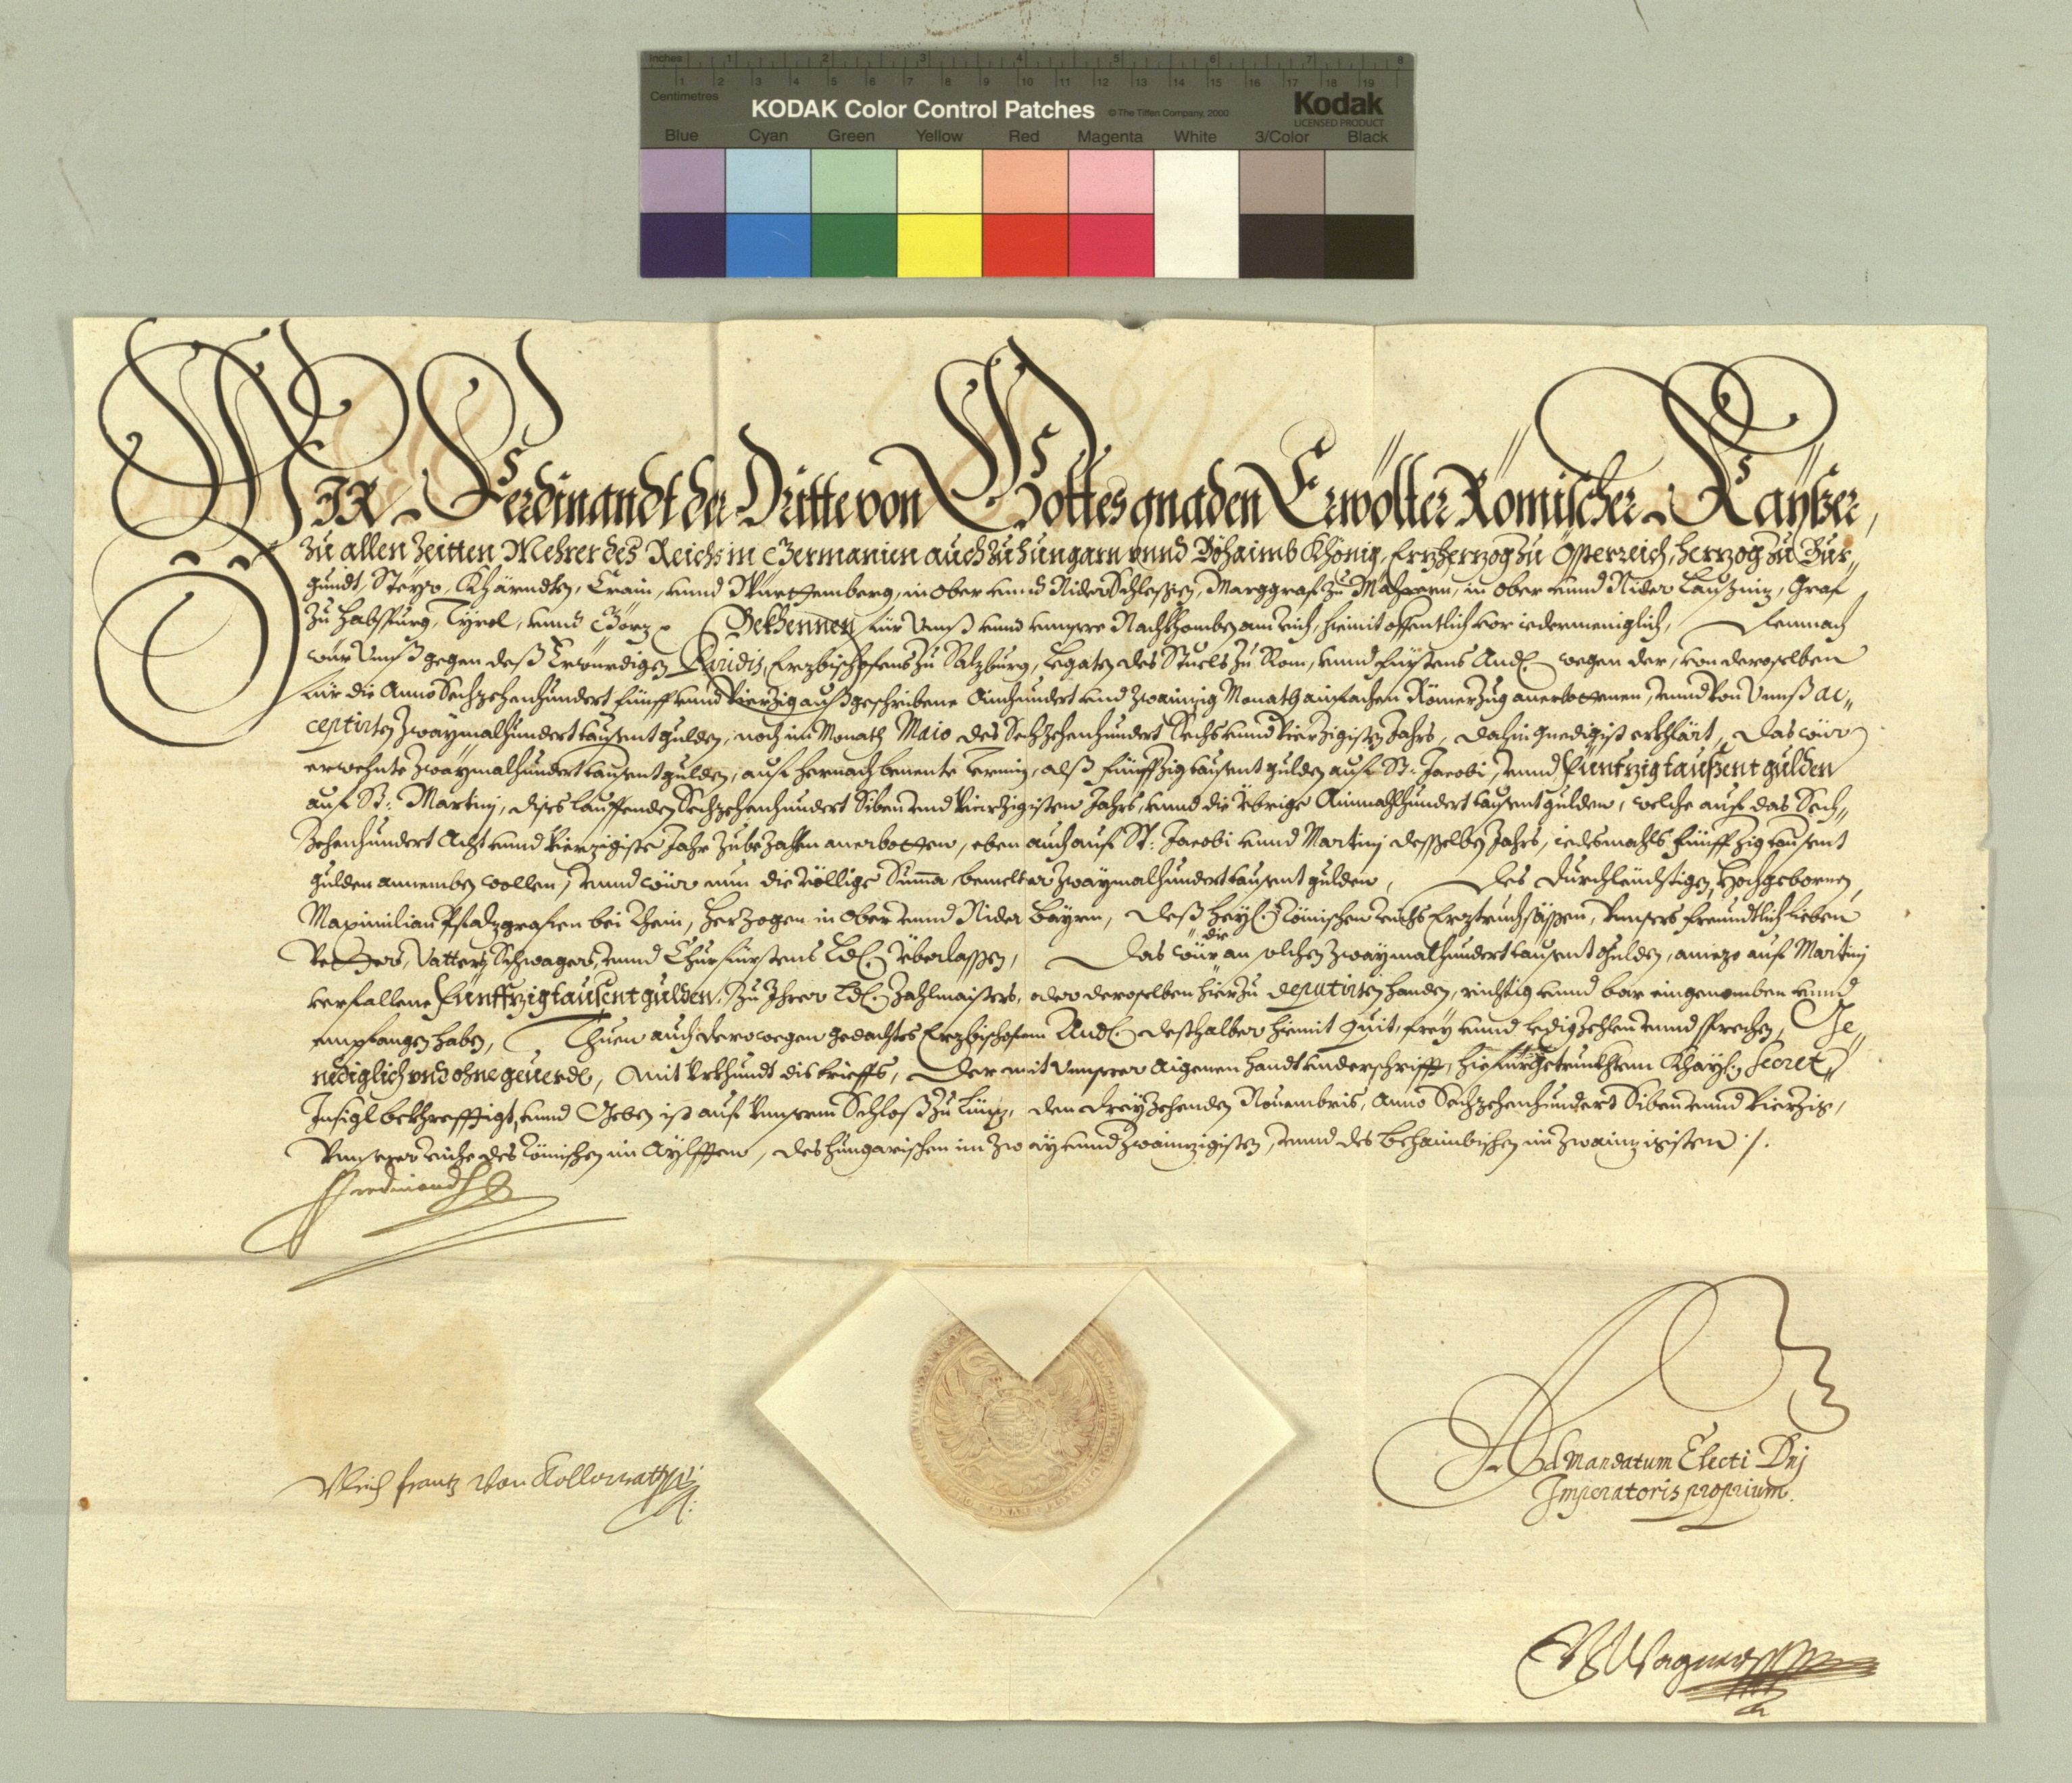 Inches 1 2 3 4 5 6 7 8
Centimetres 1 2 3 4 5 6 7 8 9 10 11 12 13 14 15 16 17 18 19
KODAK Color Control Patches © The Tiffen Company, 2000 Kodak
LICENSED PRODUCT
Blue Cyan Green Yellow Red Magenta White 3/Color Black
WIR Ferdinandt der Dritte von Gottes gnaden Erwölter Römischer Kayßer,
zu allen Zeitten Mehrer des Reichs in Germanien auch zu hungarn vnnd Böhaimb Khönig, Erzherzog zu Össterreich, herzog zu Bur„
gundt, Steyr, Khärndten, Crain, vnnd Württemberg, in Ober vnnd Nider Schlesien, Marggraf zu Mähren, in Ober vnnd Nider Laußniz, Graf
zu Habspurg, Tyrol, vnnd Görz Bekhennen für Vnnß vnnd vnnsere Nachkhomben am Reich, hiemit offentlich vor iedermeniglich, Demnach
wür Vnnß gegen deß Erwürdigen Paridis, Erzbischofens zu Salzburg, Legaten des Stuels zu Rom, vnnd Fürstens And. wegen der, von deroselben
für die Anno Sechzehenhundert fünff vnnd Vierzig außgeschribene Ainhundert vnd zwainzig Monath ainfachen Römerzug anerbottenen, vnnd von Vnnß ac„
ceptirten zwaymalhundert tausent gulden, noch im Monath Maio des Sechzehenhundert Sechs vnnd Vierzigisten Jahrs, dahin gnedigist erkhlärt, das wür
erwehnte zwaymalhundert tausent gulden, auf hernach benente Termin, alß fünffzig tausent gulden auf St: Jacobi, vnnd Fünfzig taußent gulden
auf St: Martinj, dises lauffenden Sechzehenhundert Siben vnd Vierzigisten Jahrs, vnnd die Übrige Ainmahlhundert tausent gulden, welche auf das Sech„
zehenhundert Acht vnnd Vierzigiste Jahr zubezahlen anerbotten, eben auch auf St: Jacobi vnnd Martinj desselben Jahrs, iedesmahls fünffzig tausent
gulden annemben wollen, vnnd wür nun die völlige Summa bemelter zwaymalhundert tausent gulden, des Durchleuchtigen Hochgebornen,
Maximilian Pfalzgrafen bei Rhein, Herzogen in Ober vnnd Nider Bayrn, deß Heyl. Römischen Reichs Erztruchsässen, Vnnsers freundtlich lieben
Vetters, Vatters, Schwagers, vnnd Churfürstens Ld. Überlassen, Das wür die an solchen zwaymalhundert tausent gulden, aniezo auf Martinj
verfallene Fünffzig tausent gulden, zu Ihrer Ld. Zahlmaisters, oder deroselben hierzu deputirten handen, richtig vnnd bar eingenomben vnnd
empfangen haben, Thuen auch derowegen gedachtes Erzbischofens And. desthalber hiemit quit, frey vnnd ledig zehlen vnnd sprechen, Ge„
nediglich vnd ohne geuerde, Mit Vrkhundt dis brieffs, Der mit Vnnserer aigenen handt vnderschrifft, hiefür getruckhtem Khayl. Secret„
Insigl bekhrefftigt, vnnd Geben ist auf Vnnserm Schloß zu Lünz, den dreyzehenden Nouembris, Anno Sechzehenhundert Siben vnnd Vierzig,
Vnnserer Reiche des Römischen im Aylfften, des hungarischen im zway vnnd zwainzigisten, vnnd des Behaimbischen im zwainzigisten ./.
Ferdinandt
Vlrich Frantz Von Kollowrath
Ad Mandatum Electi Dnj
Imperatoris proprium.
Wagner